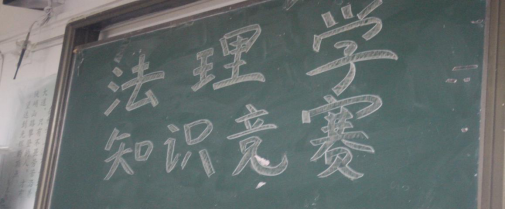 法理学
知识竞赛